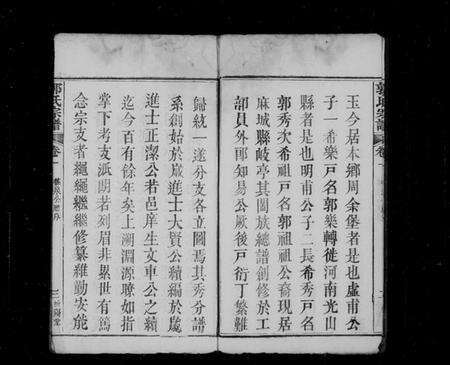 郭氏宗譜
卷
玉今居本鄉周余堡者是也虛甫公
子一希樂戶名郭樂轉徙河南光山
縣者是也明甫公子二長希秀戶名
郭秀次希祖戶名郭祖祖公裔現居
麻城縣岐亭其闔族總譜創修於工
部員外郎知易公厥後戶衍丁繁難
歸統一遂分支各立圖焉其秀分譜
系創始於歲進士大賢公續編於歲
進士正潔公若邑庠生文車公之續
迄今百有餘年矣上溯淵源瞭如指
掌下考支派朗若列眉非累世有篤
念宗支者繩繩繼繼修纂維勤安能
郭氏宗譜
卷一
三
陽堂